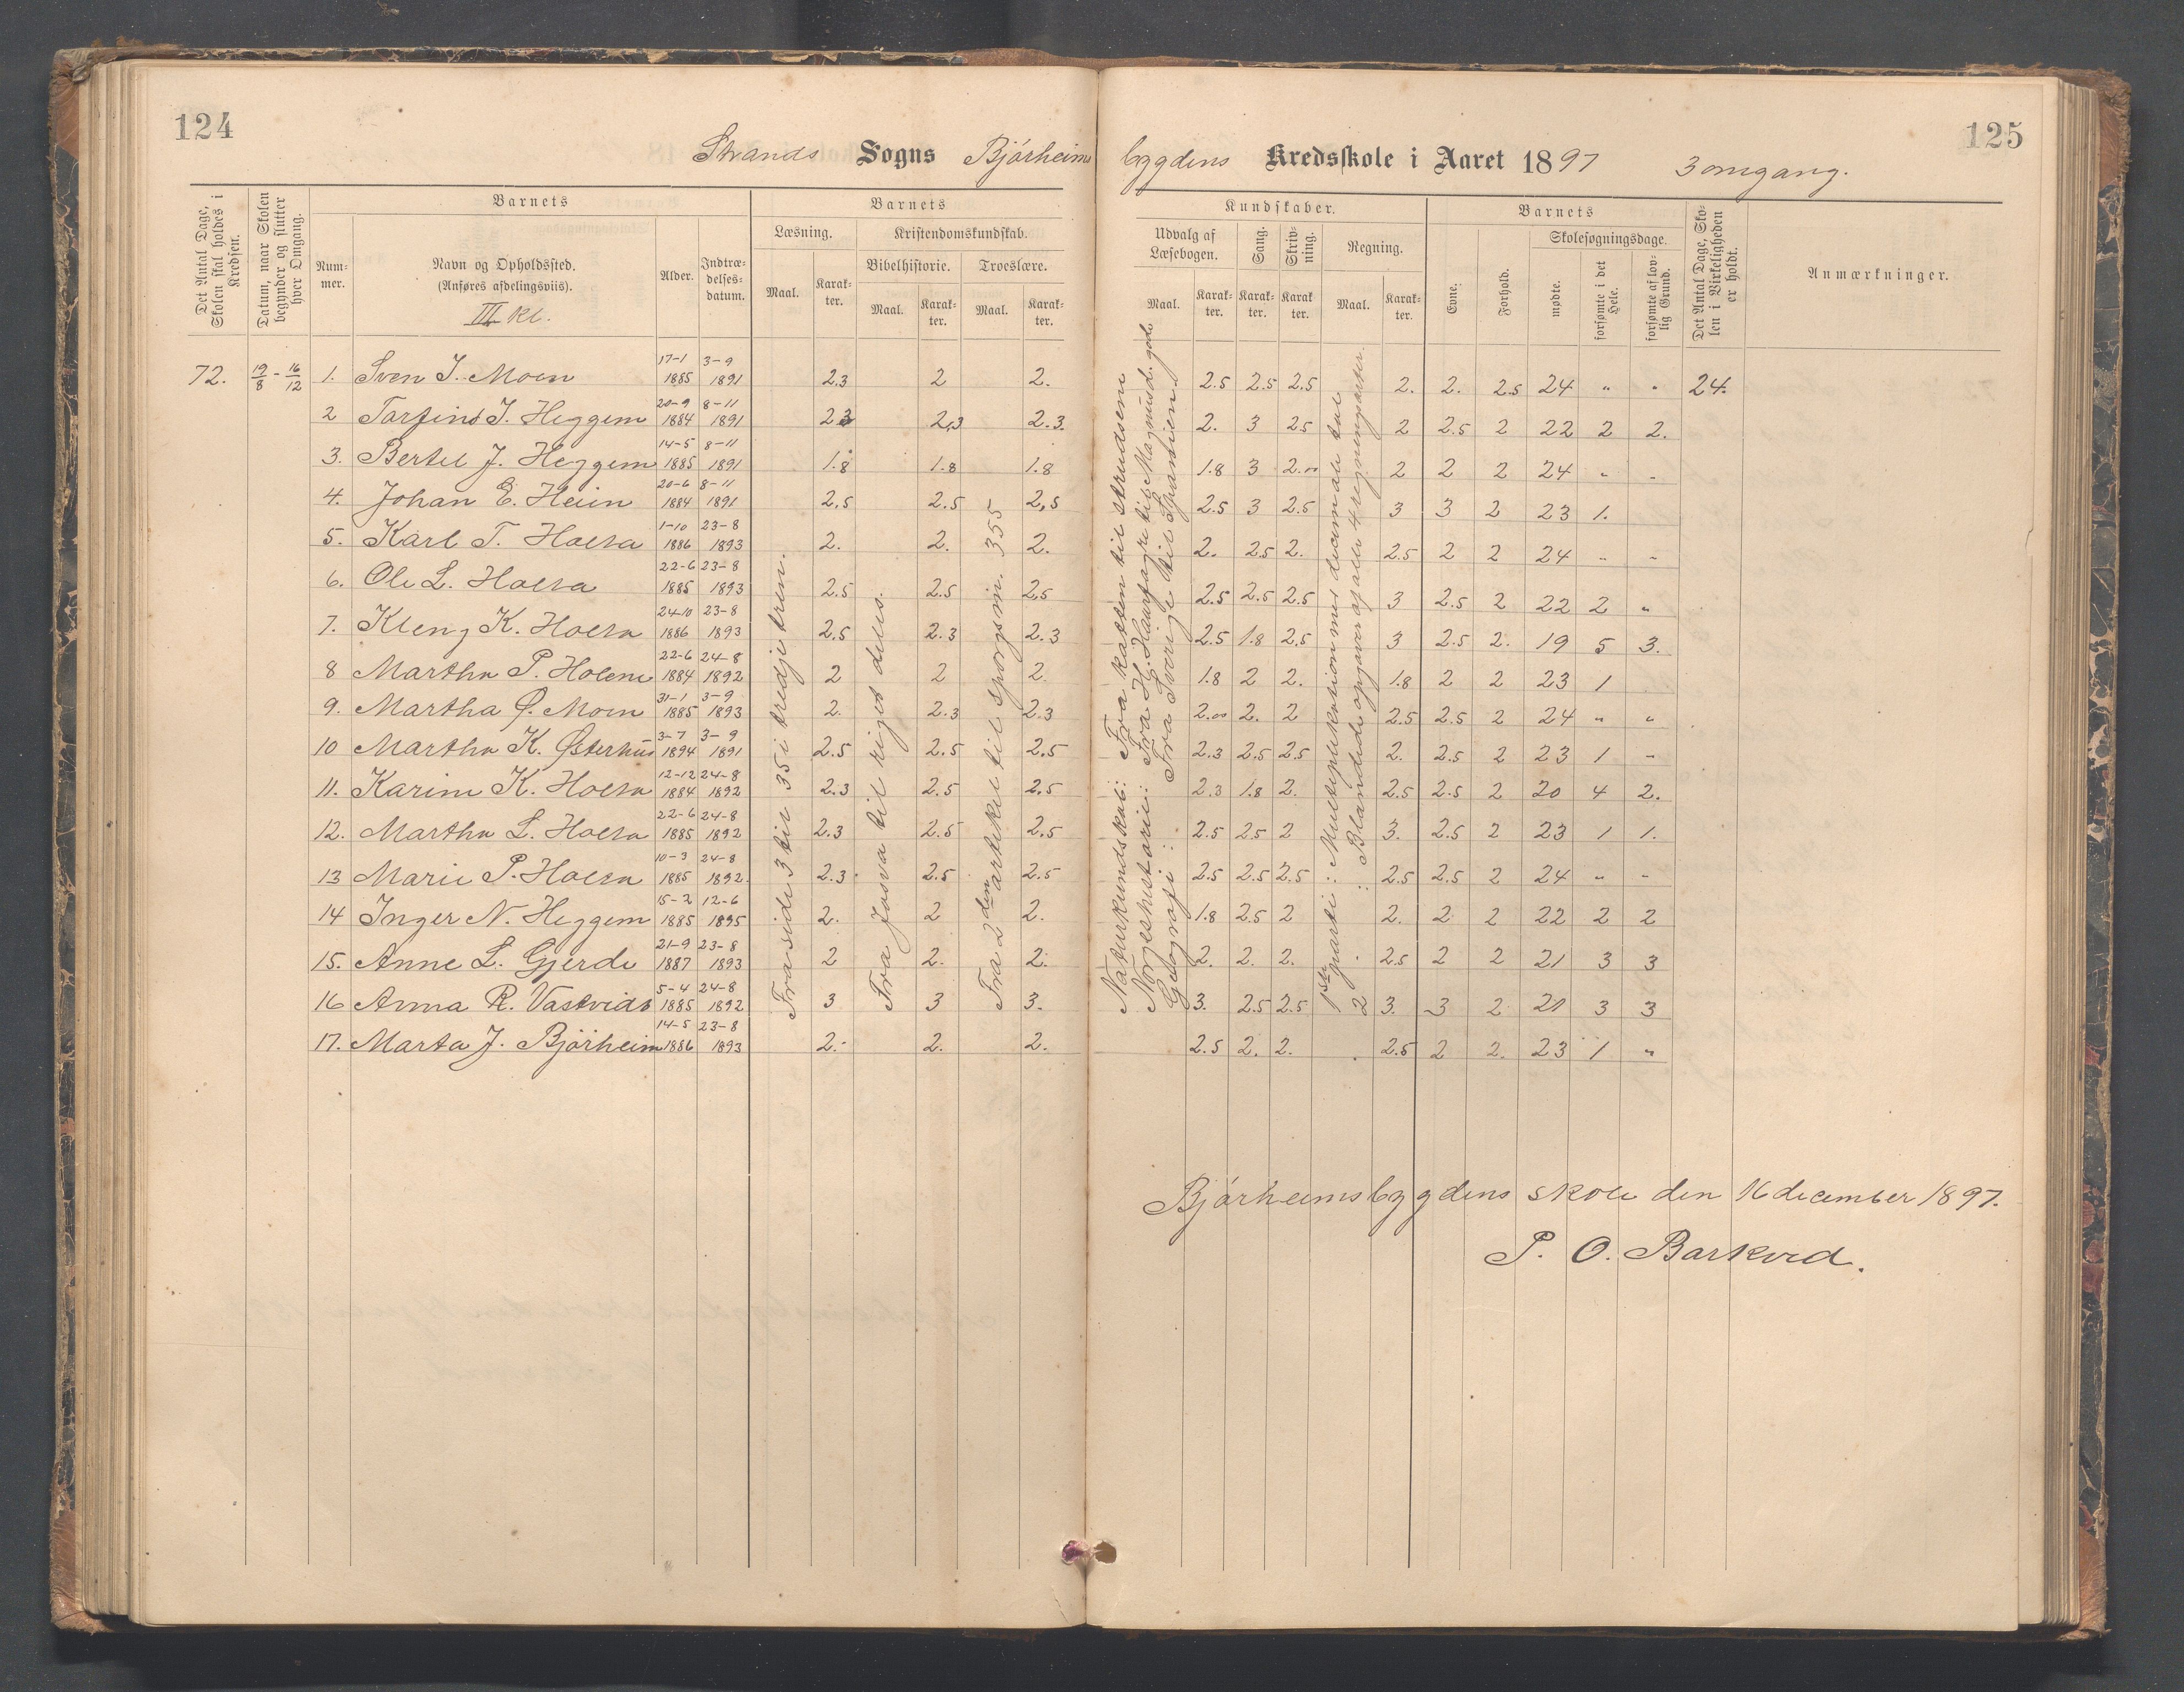 124
125
Strands Sogns Bjórheims bygdens Kredsskole i Aaret 1897 3 omgang.
Det Antal Dage, Skolen skal holdes i Kredsen.
Datum, naar Skolen begynder og slutter hver Omgang.
Barnets
Num-mer.
Navn og Opholdssted.
(Anføres afdelingsviis).
III kl.
Alder.
Indtræ-delses-datum.
Barnets
Læsning.
Maal.
Karak-ter.
Kristendomskundskab.
Bibelhistorie.
Maal.
Karak-ter.
Troeslære.
Maal.
Karak-ter.
Kundskaber.
Udvalg af Læsebogen.
Maal.
Karak-ter.
Sang.
Karak-ter.
Skriv-ning.
Karak ter.
Regning.
Maal.
Karak-ter.
Barnets
Evne.
Forhold.
Skolesøgningsdage.
mødte.
forsømte i det Hele.
forsømte af lov-lig Grund.
Det Antal Dage, Sko-len i Virkeligheden er holdt.
Anmærkninger.
72. 19/8 - 16/12 1. Sven J. Moen 17-1 1885 3-9 1891 2.3 2 2. 2.5 2.5 2.5 2. 2. 2.5 24 " " 24.
2 Torfinds J. Heggem 20-9 1884 8-11 1891 2.3 2,3 2.3. 2. 3 25 2 2.5 2 22 2 2.
3. Bertel J. Heggem 14-5 1885 8-11 1891 1.8 1.8 1.8 1.8 3 2.00 2 2 2 24 " "
4. Johan E. Heien 20-6 1884 8-11 1891 2,5 2.5 2,5 2.5 3 2.5 3 3 2 23 1.
5. Karl T. Holta 1-10 1886 23-8 1893 2. 2. 2. 2. 2.5 2. 2.5 2 2 24 " "
6. Ole L. Holta 22-6 1885 23-8 1893 2.5 2.5 2,5 2.5 2.5 2.5 3 2.5 2 22 2 "
7. Kleng K. Holta 24-10 1886 23-8 1893 2.5 2.3 2.3 2.5 1.8 2.5 3 2.5 2. 19 5 3.
8 Martha P. Holene 22-6 1884 24-8 1892 2 2 2. 1.8 2 2. 1.8 2 2 23 1
9. Martha Ø. Moen 31-1 1885 3-9 1893 2. 2.3 2.3 2.00 2. 2 2.5 2.5 2 24 " "
10 Martha K. Østerhus 3-7 1894 3-9 1891 2.5 2.5 2,5 2.3 2.5 2.5 2. 2.5 2 23 1 "
11. Karine K. Holta 12-12 1884 24-8 1892 2.3 2.5 2,5 2.3 1.8 2. 2.5 2.5 2 20 4 2.
12. Martha L. Holta 22-6 1885 24-8 1892 2.3 2.5 2,5 2.5 2.5 2 3. 2.5 2 23 1 1.
13 Marie P. Holta 10-3 1885 24-8 1892. 2.3 2.5 2.5 2.5 2.5 2.5 2.5 2.5 2 24 " "
14 Inger N. Heggem 15-2 1885 12-6 1895 2. 2 2. 1.8 2.5 2 2. 2 2 22 2 2
15. Anne L. Gjerde 21-9 1887 23-8 1893 2 2. 2. 2. 2. 2. 2.5 2 2 21 3 3
16 Anna R. Vastvids 5-4 1885 24-8 1892 3 3 3. 3. 2.5 2.5 2 3. 3 2 21 3 3
17. Marta J. Bjórheim 14-5 1886 23-8 1893 2. 2. 2. 2.5 2. 2. 2.5 2 2. 23 1 "
Fra side 3 til 35 i tredje trin.
Fra Josva til riges deles.
Fra 2den artikel til sporgsm. 355
Naturkundskab: Fra katten til strudsen
Norgeshistorie: Fra H. Haarfagre til Magnus d. gode
Geografi: Fra Sverige til Spanien.
1ste parti: Multiplikation med decimale tal
2 : Blandede opgaver af alle 4 regningsarter.
Bjórheimsbygdens skole den 16 december 1897.
P. O. Barkved.